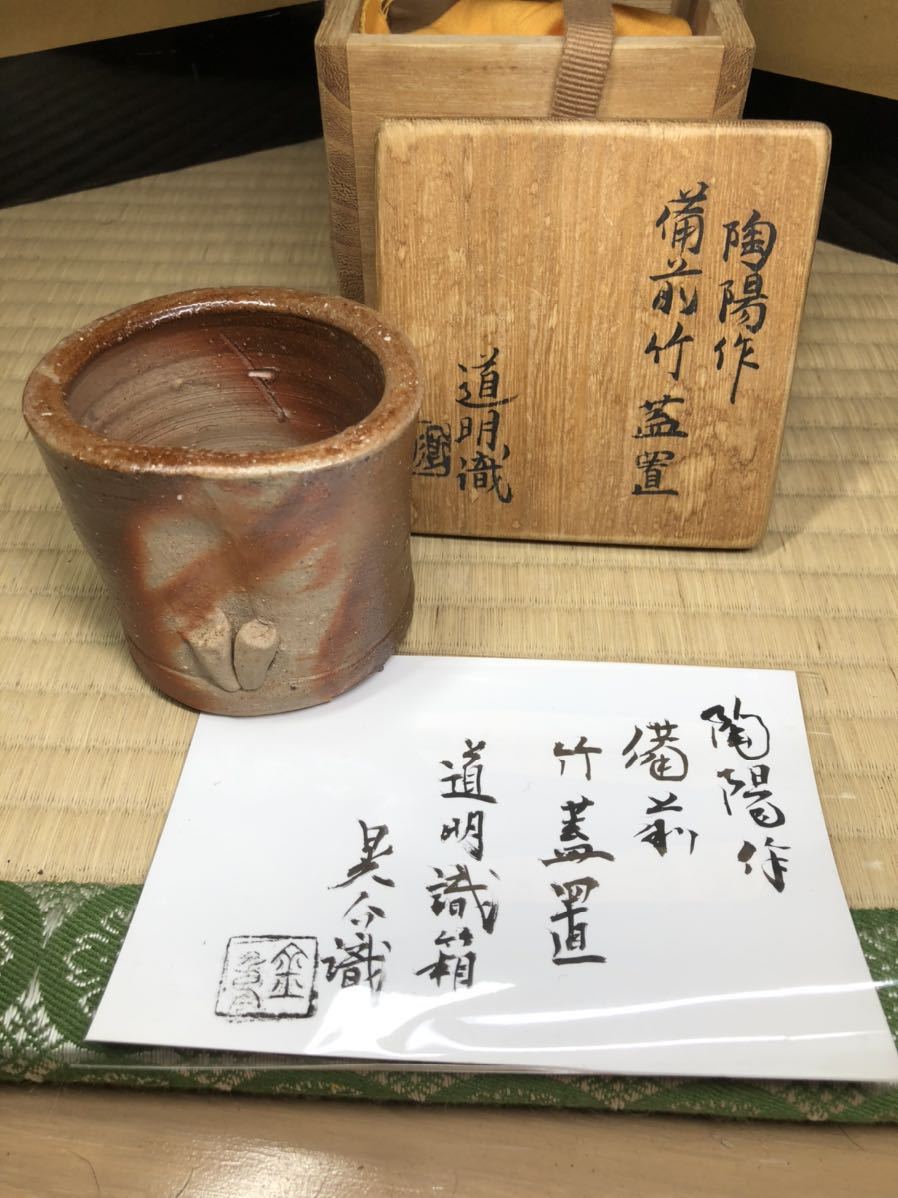 陶陽作
備前竹蓋置
道明識
陶陽作
備前
竹蓋置
道明識箱
晃介識